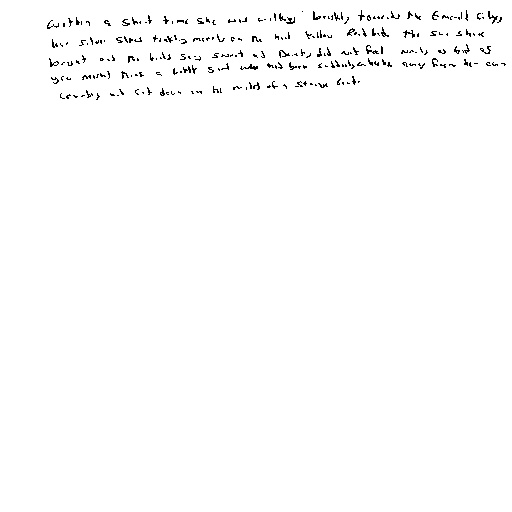 Within a short time she was walking briskly towards the Emerald City,
her silver shoes tinkling merrily on the hard yellow Roadbed. The sun shone
bright and the birds sang sweet and Dorothy did not feel nearly as bad as
you might think a little girl who had been suddenly whisked away from her own
country and set down in the midst of a strange land.